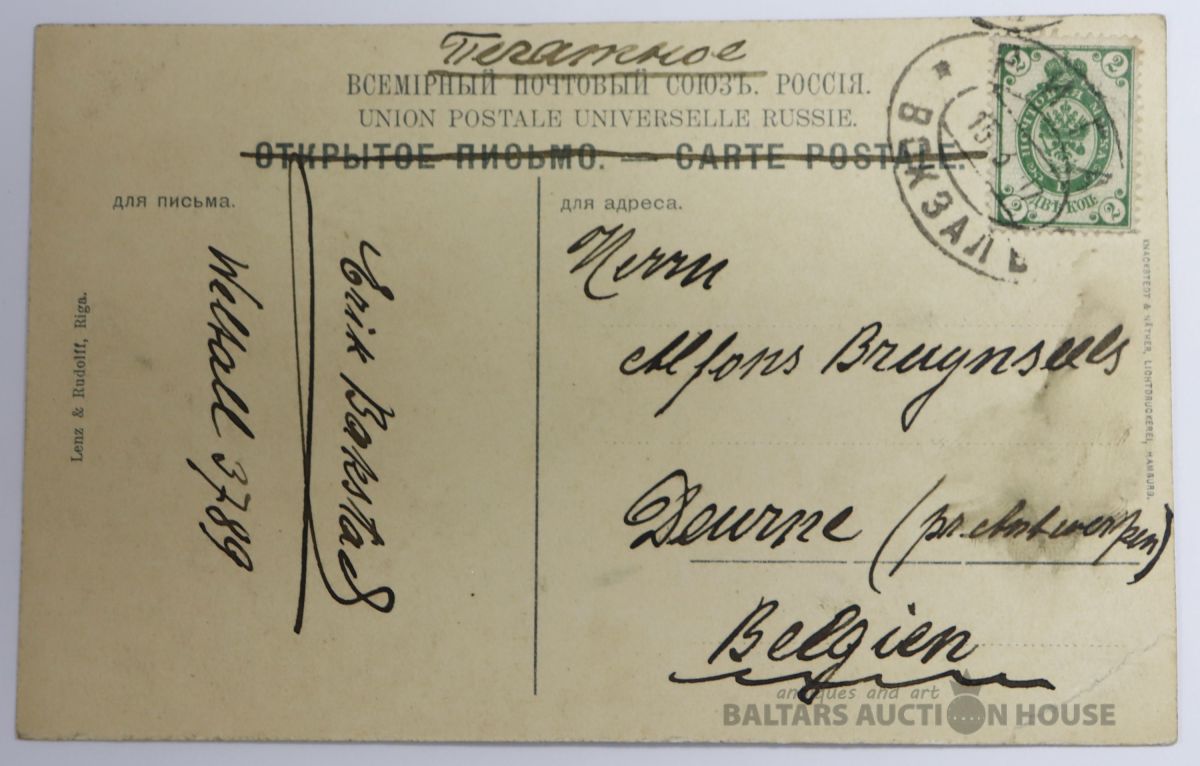 Печатное
ВСЕМІРНЫЙ ПОЧТОВЫЙ СОЮЗЪ. РОССІЯ.
UNION POSTALE UNIVERSELLE RUSSIE.
ОТКРЫТОЕ ПИСЬМО. — CARTE POSTALE.
для письма.
для адреса.
Herrn
Alfons Bruynseels
Deurne (pr. Antwerpen)
Belgien
Erik Bokstad
Weltall 3789
Lenz & Rudolff, Riga.
KNACKSTEDT & NÄTHER, LICHTDRUCKEREI, HAMBURG.
ВОКЗАЛЪ
2 2
ДВѢ КОП.
2 2
antiques and art
BALTARS AUCTION HOUSE